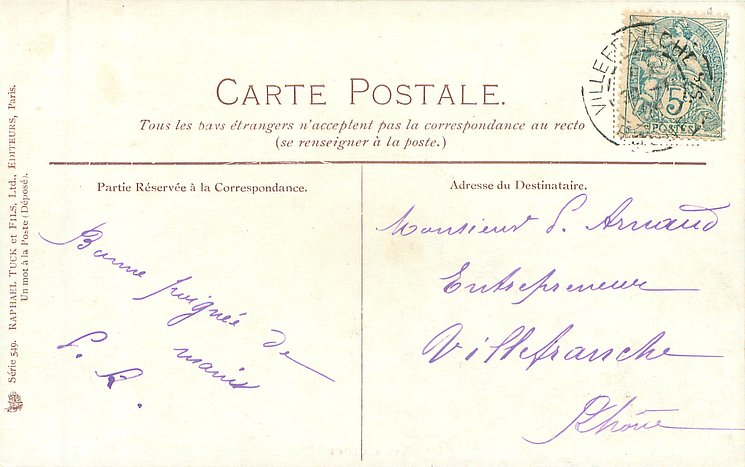 CARTE POSTALE.
Tous les pays étrangers n'acceptent pas la correspondance au recto
(se renseigner à la poste.)
Partie Réservée à la Correspondance.
Bonne poignée de
mains
Adresse du Destinataire.
Monsieur P. Arnaud
Entrepreneur
Villefranche
Rhône
Série 549. RAPHAEL TUCK et FILS, Ltd., EDITEURS, Paris.
Un mot à la Poste (Déposé).
VILLEFRANCHE
5
POSTES